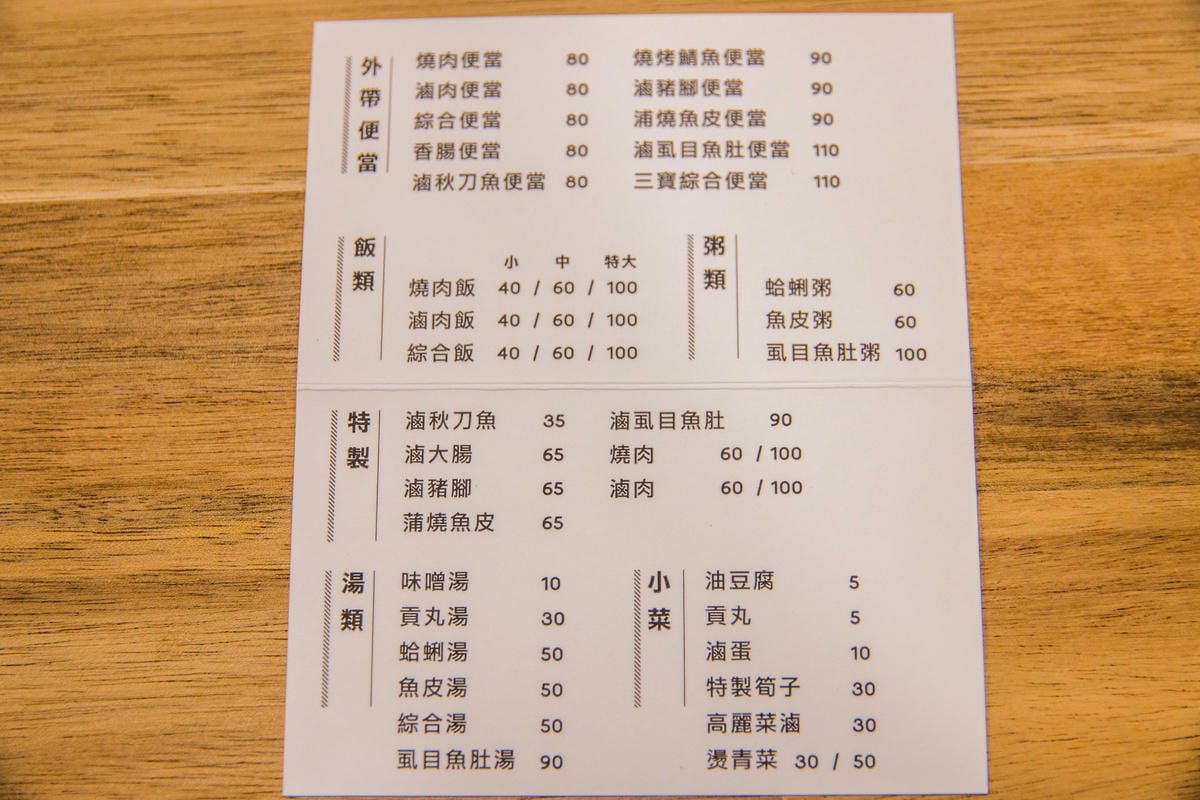 外帶便當
燒肉便當 80
滷肉便當 80
綜合便當 80
香腸便當 80
滷秋刀魚便當 80
燒烤鯖魚便當 90
滷豬腳便當 90
浦燒魚皮便當 90
滷虱目魚肚便當 110
三寶綜合便當 110
飯類
小 中 特大
燒肉飯 40 / 60 / 100
滷肉飯 40 / 60 / 100
綜合飯 40 / 60 / 100
粥類
蛤蜊粥 60
魚皮粥 60
虱目魚肚粥 100
特製
滷秋刀魚 35
滷大腸 65
滷豬腳 65
蒲燒魚皮 65
滷虱目魚肚 90
燒肉 60 / 100
滷肉 60 / 100
湯類
味噌湯 10
貢丸湯 30
蛤蜊湯 50
魚皮湯 50
綜合湯 50
虱目魚肚湯 90
小菜
油豆腐 5
貢丸 5
滷蛋 10
特製筍子 30
高麗菜滷 30
燙青菜 30 / 50